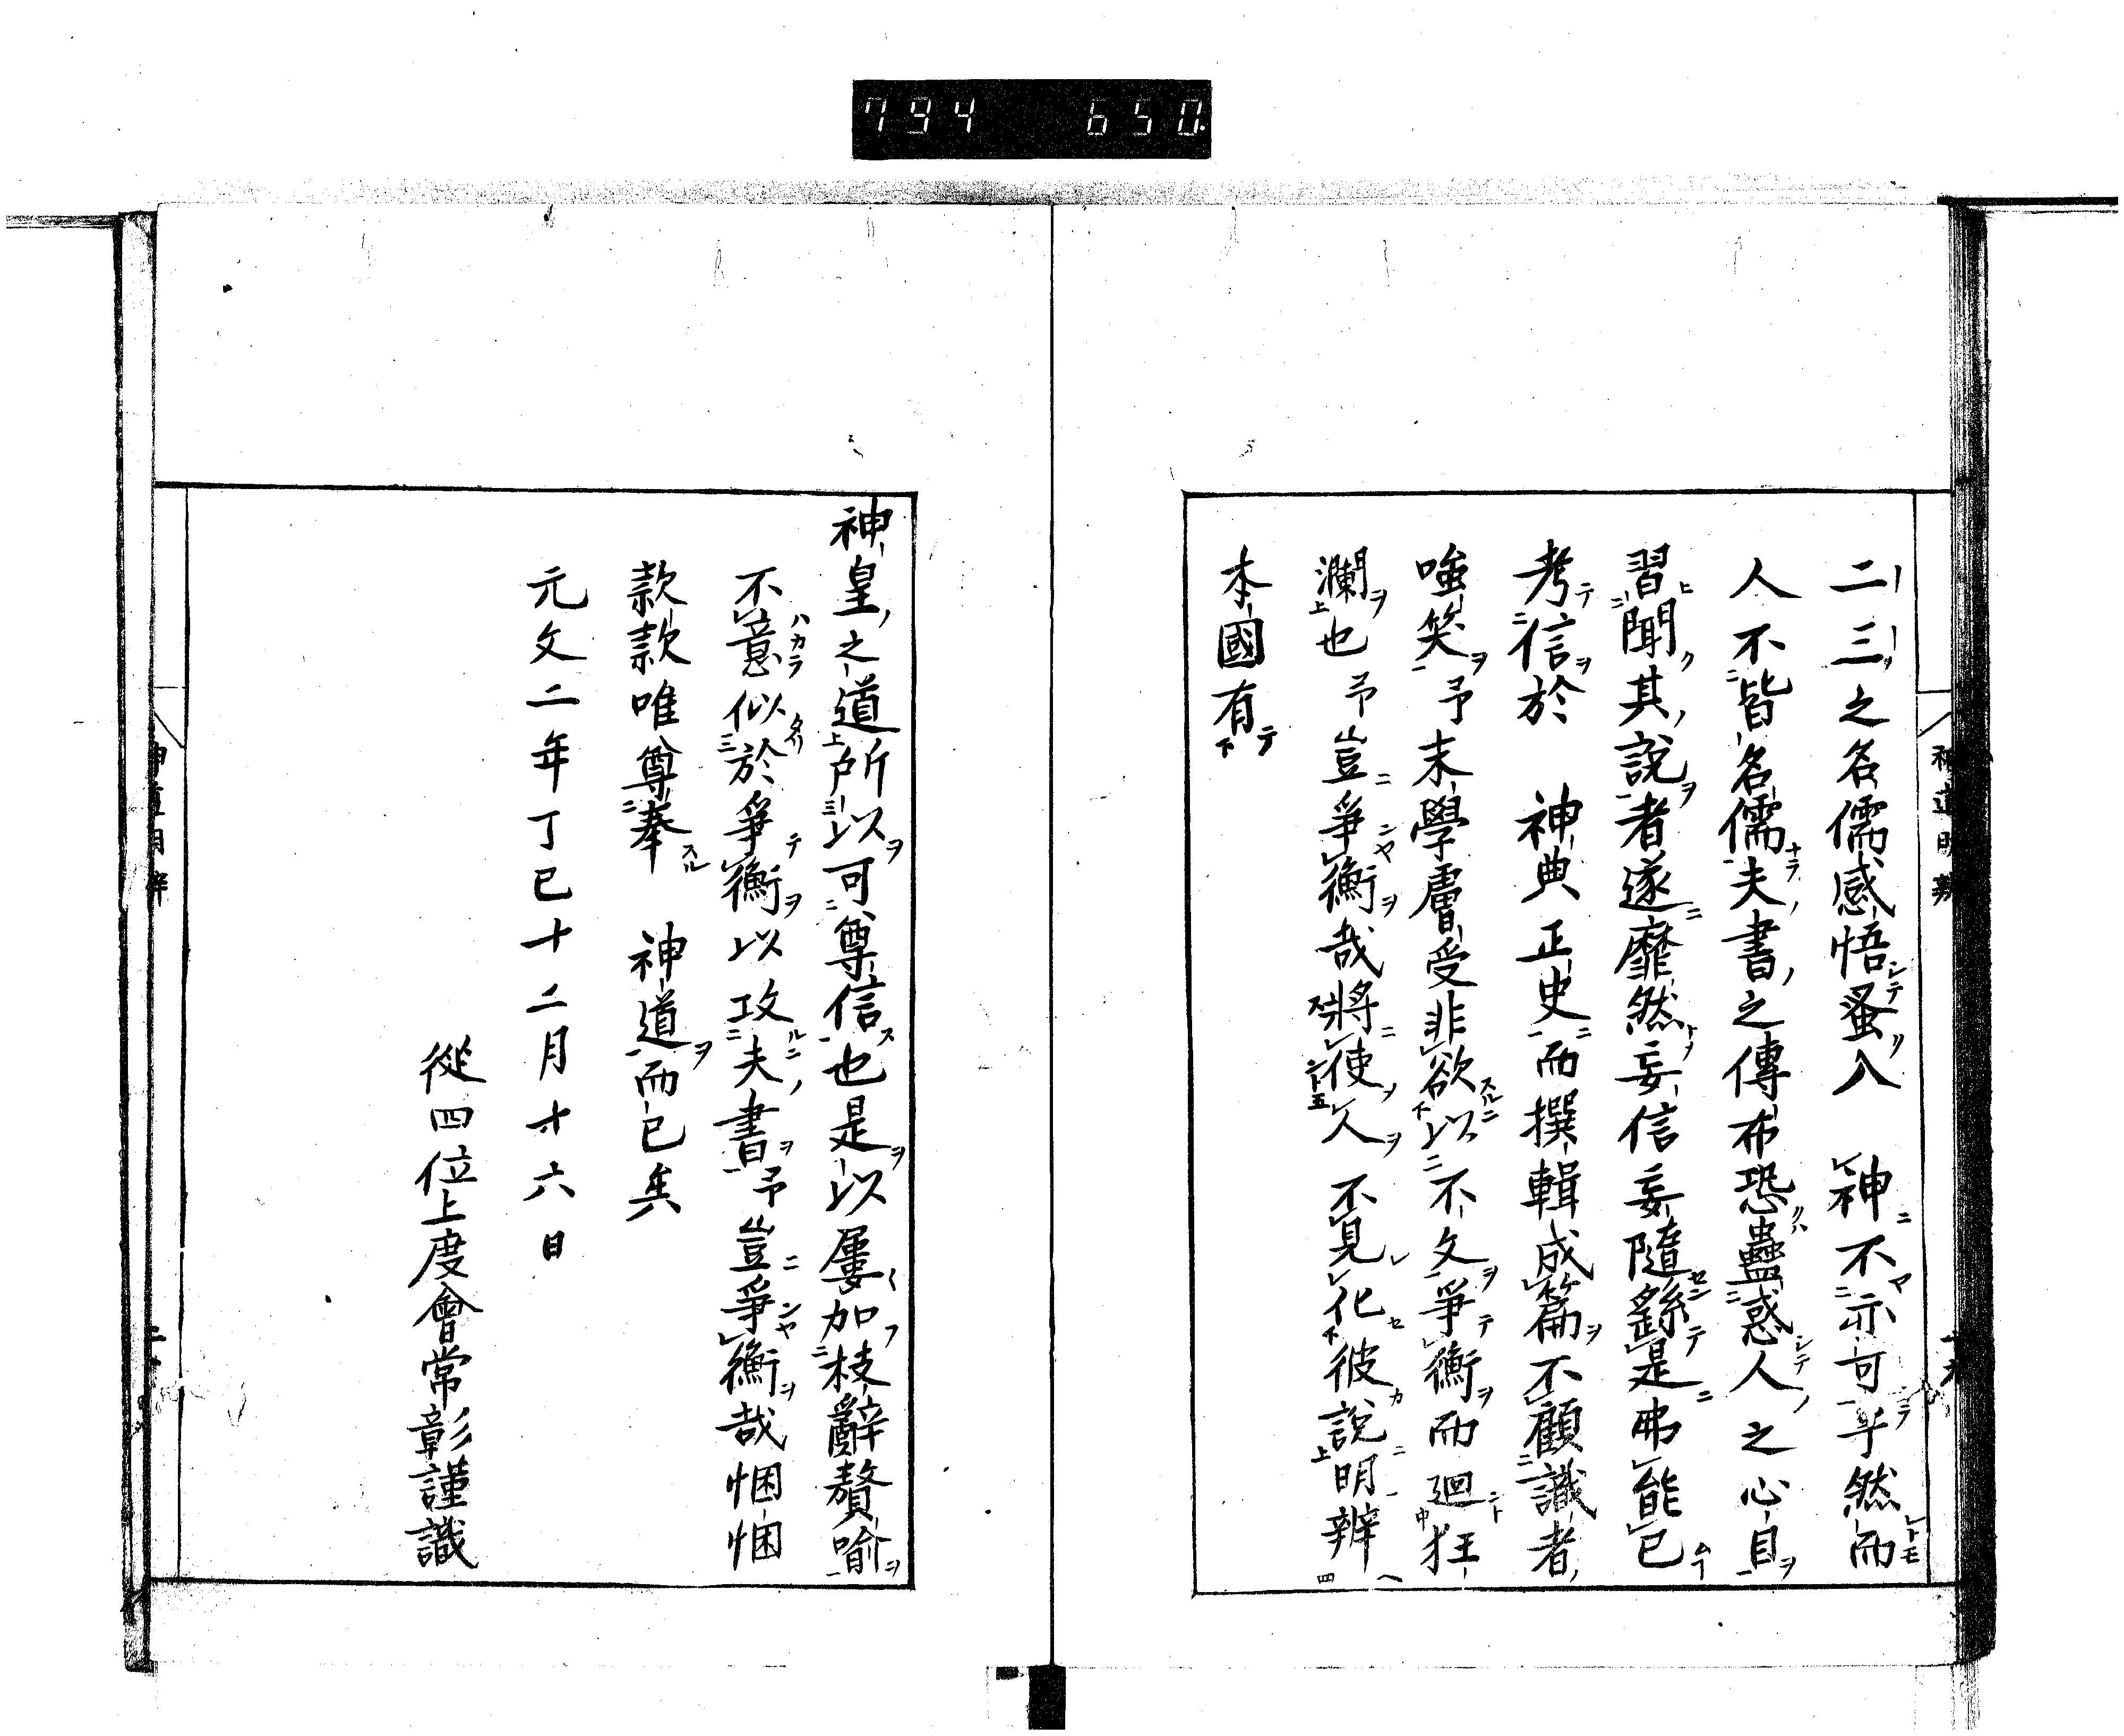 794 650.
神道明辨
二三之名儒感悟蚤入 神不亦可乎然而
人不皆名儒夫書之傳布恐蠱惑人之心目
習聞其說者遂靡然妄信妄隨繇是弗能已
考信於 神典正史而撰輯成篇不顧識者
嗤笑予末學膚受非欲以不文爭衡而廻狂
瀾也予豈爭衡哉將使人不見化彼說明辨
本國有
神皇之道所以可尊信也是以屢加枝辭贅喻
不意似於爭衡以攻夫書予豈爭衡哉悃悃
款款唯尊奉 神道而已矣
元文二年丁巳十二月廿六日
從四位上度會常彰謹識
神道明辨